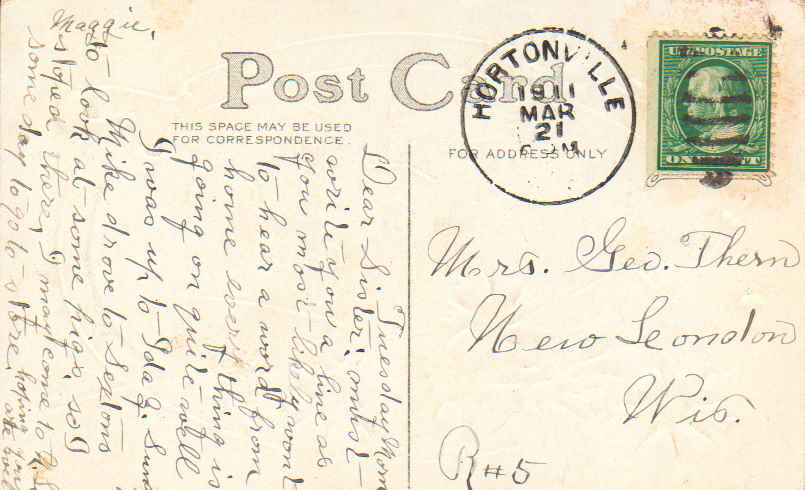 Post Card
THIS SPACE MAY BE USED
FOR CORRESPONDENCE.
FOR ADDRESS ONLY
HORTONVILLE
1911
MAR
21
U.S. POSTAGE
ONE CENT
Mrs. Geo. Thern
New London
Wis.
R#5
Tuesday Morn
Dear Sister; must
write you a line as
you most likely want
to hear a word from
home every thing is
going on quite well
I was up to Ida Z. Sund
Mike drove to Septons
to look at some pigs, so I
stoped there, I may come to
some day to go to store, hoping you
are well
Maggie.